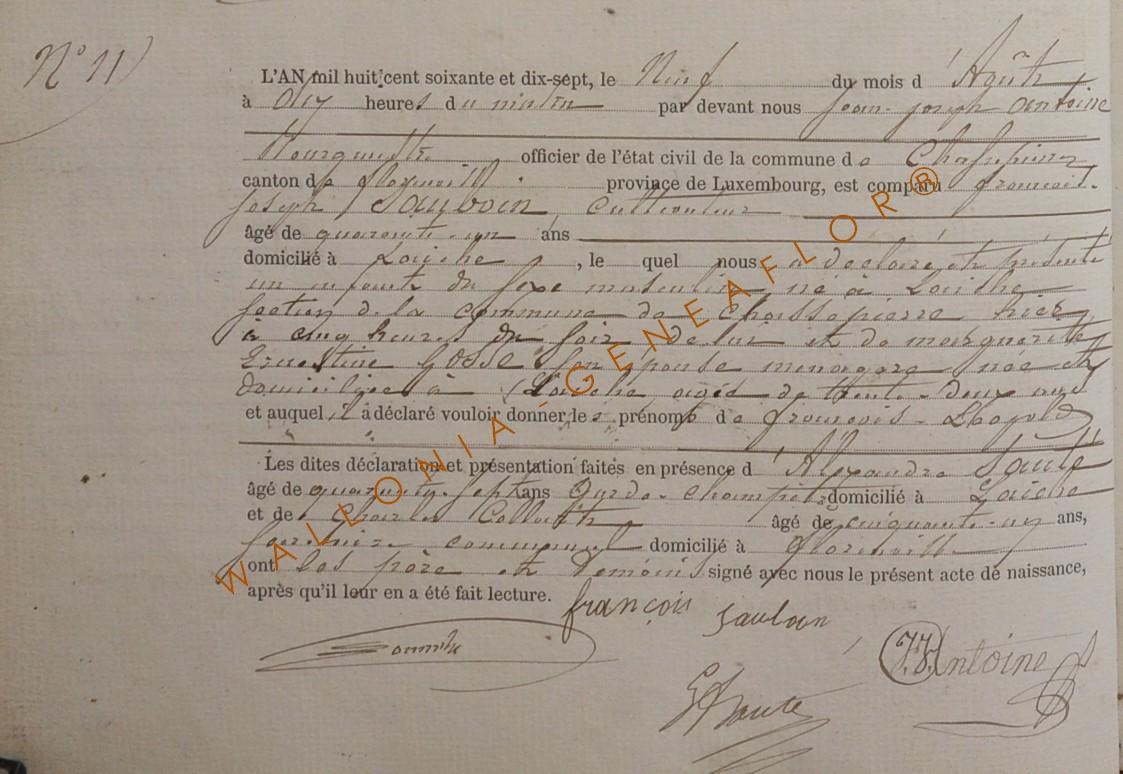 N° 11
L'AN mil huit cent soixante et dix-sept, le Neuf du mois d'Août
à dix heures du matin par devant nous Jean-Joseph Antoine
Bourgmestre officier de l'état civil de la commune de Chassepierre
canton de Florenville province de Luxembourg, est comparu François-
Joseph Saulvoin, Cultivateur
âgé de quarante-un ans
domicilié à Laiche, le quel nous a déclaré et présenté
un enfant du sexe masculin né à Laiche
section de la commune de Chassepierre hier
à cinq heures du soir de lui et de marguerite
Ernestine Gosse son épouse menagère née et
domiciliée à Laiche, agée de trente-deux ans
et auquel il a déclaré vouloir donner les prénoms de François-Léopold
Les dites déclaration et présentation faites en présence d'Alexandre
âgé de quarante-sept ans Garde-champêtre domicilié à Laiche
et de Charles âgé de cinquante-un ans,
communal domicilié à Florenville
ont les père et témoins signé avec nous le présent acte de naissance,
après qu'il leur en a été fait lecture.
françois
J.J. Antoine
WALLONIA-GENEAFLOR®